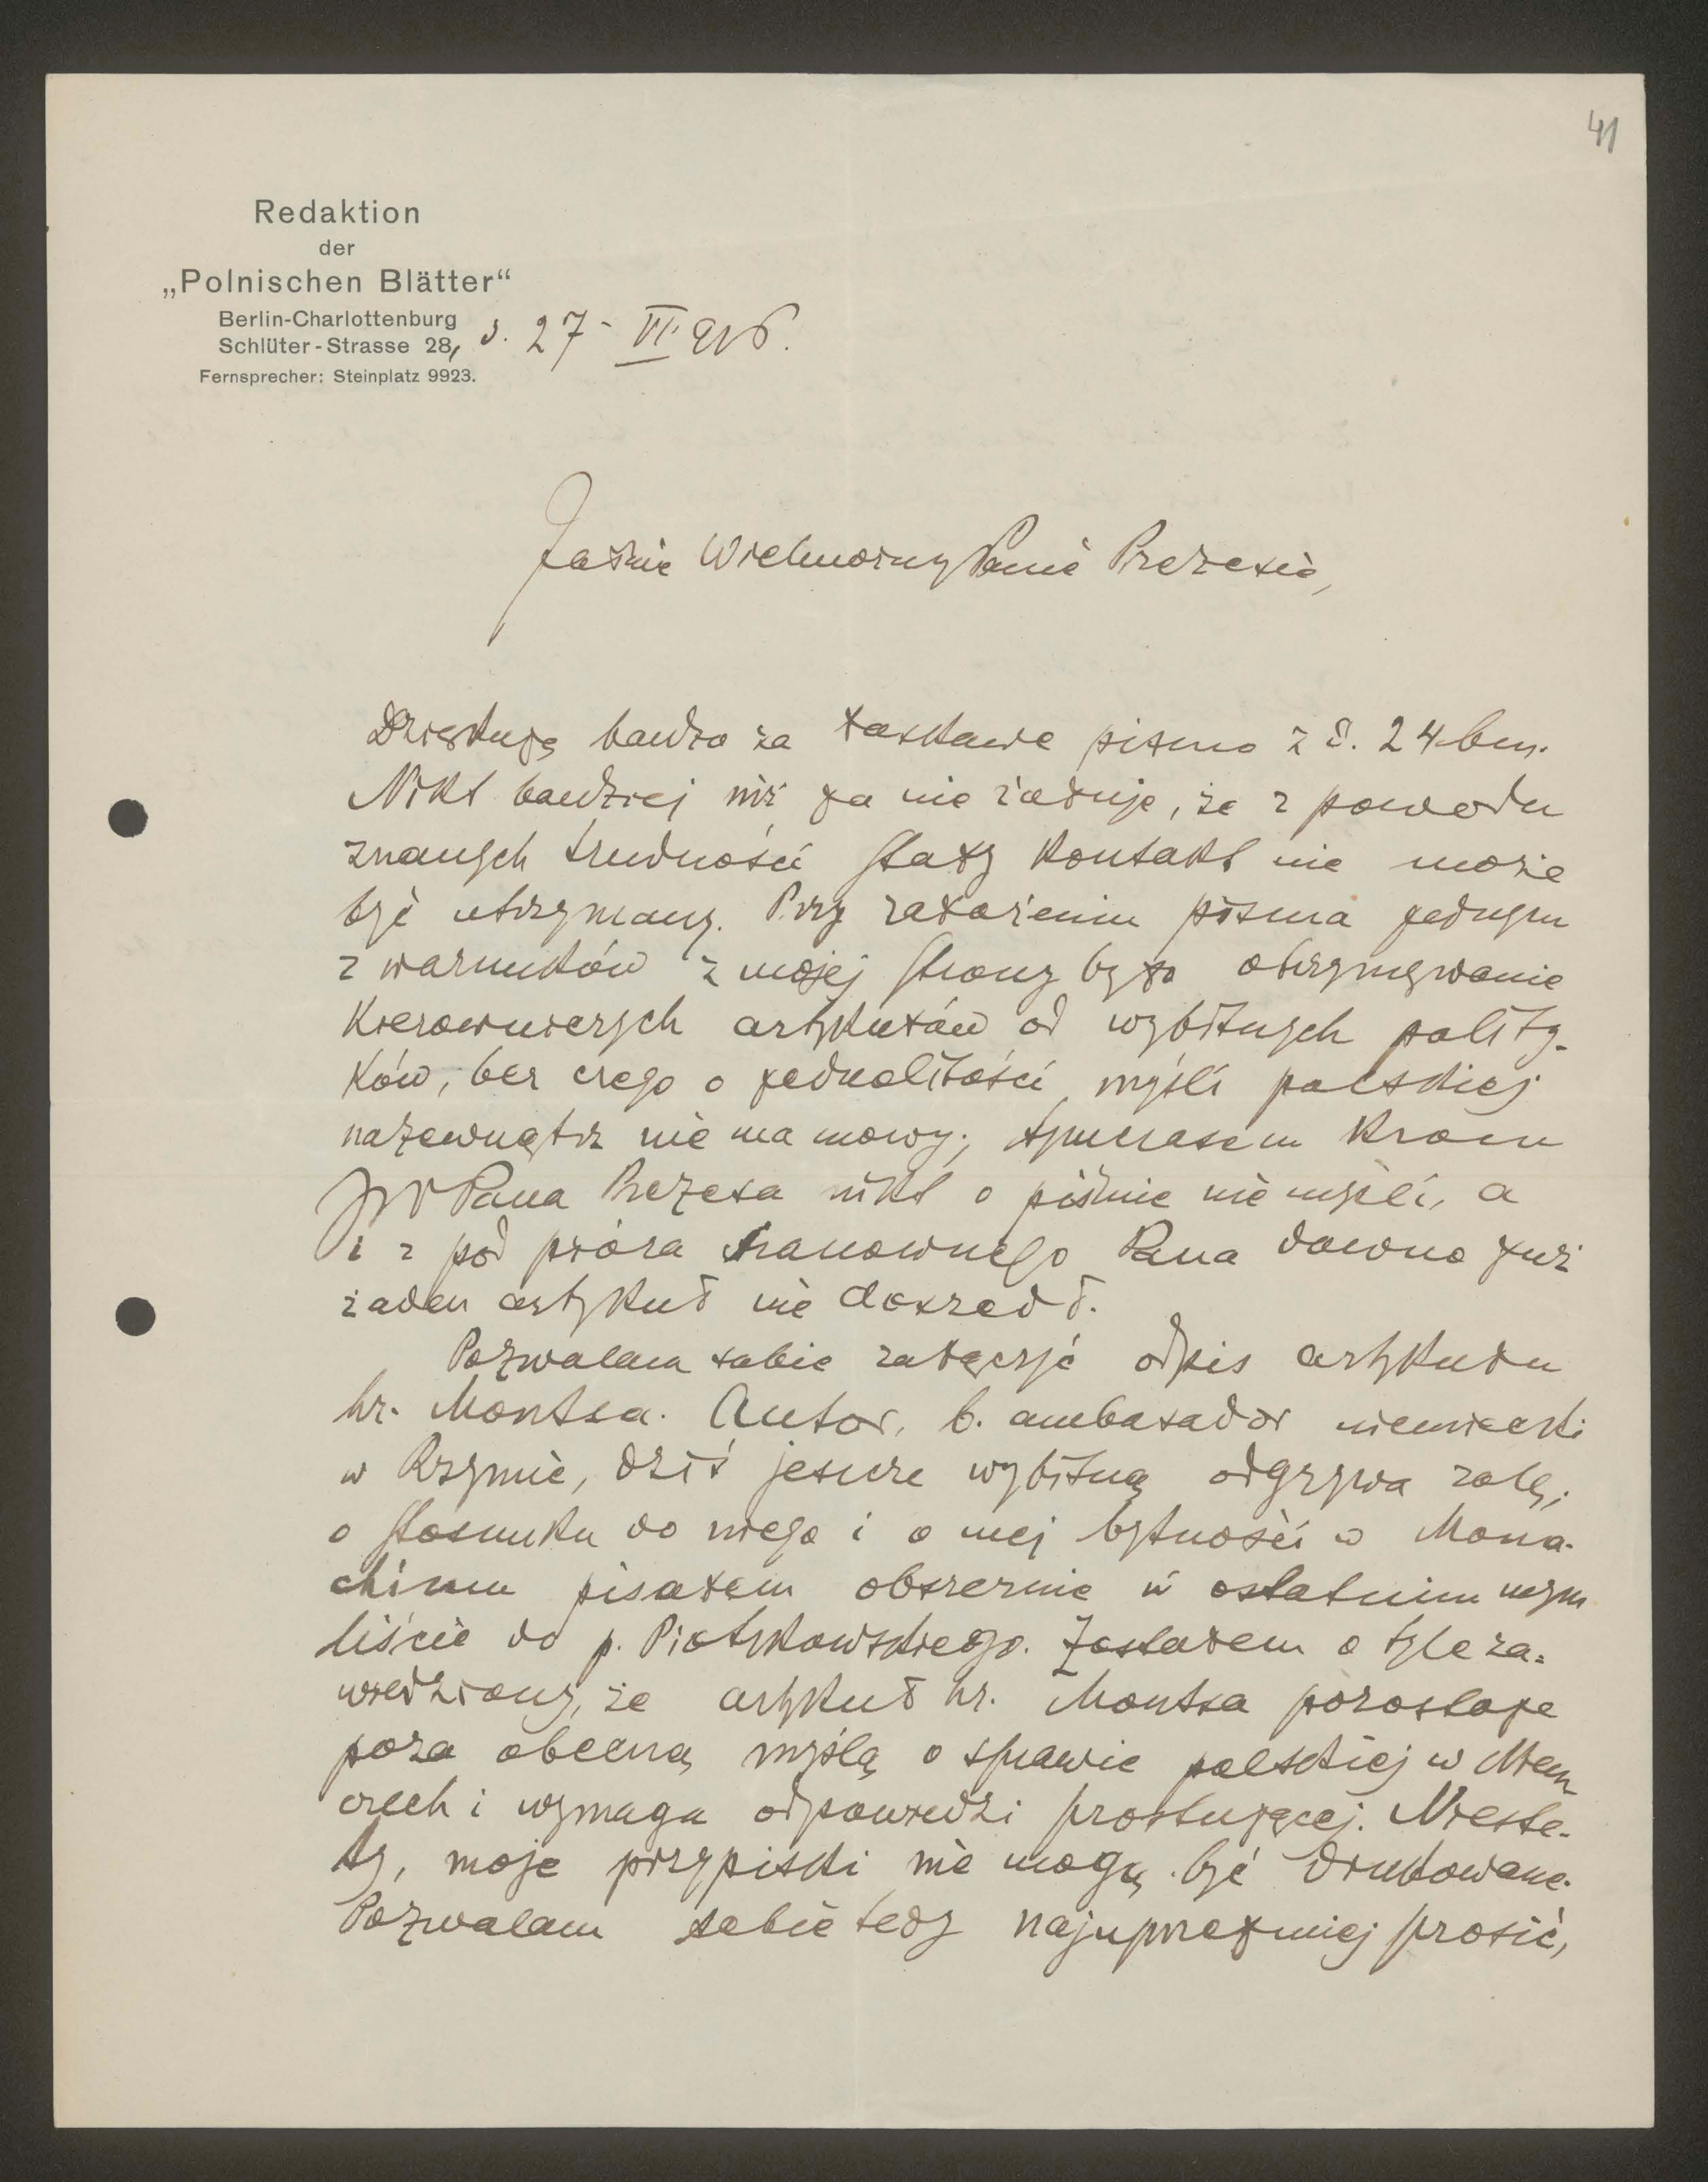 41
Redaktion
der
„Polnischen Blätter“
Berlin-Charlottenburg
Schlüter-Strasse 28, d. 27 - VI. 916.
Fernsprecher: Steinplatz 9923.
Jaśnie Wielmożny Panie Prezesie,
Dziękuję bardzo za łaskawe pismo z d. 24 bm.
Nikt bardziej niż ja nie żałuje, że z powodu
znanych trudności stały kontakt nie może
być utrzymany. Przy założeniu pisma jednym
z warunków z mojej strony było otrzymywanie
kierowniczych artykułów od wybitnych polity-
ków, bez czego o jednolitości myśli polskiej
nazewnątrz nie ma mowy; tymczasem kroem
JW Pana Prezesa nikt o piśmie nie myśli, a
i z pod pióra Szanownego Pana dawno już
żaden artykuł nie doszedł.
Pozwalam sobie załączyć odpis artykułu
hr. Montsa. Autor, b. ambasador niemiecki
w Rzymie, dziś jeszcze wybitną odgrywa rolę;
o stosunku do niego i o mej bytności w Mona-
chium pisałem obszernie w ostatnim mym
liście do p. Piotrkowskiego. Zostałem o tyle za-
wiedziony, że artykuł hr. Montsa pozostaje
poza obecną myślą o sprawie polskiej w Niem
czech i wymaga odpowiedzi prostującej. Nieste-
ty, moje przypiski nie mogą być drukowane.
Pozwalam sobie tedy najuprzejmiej prosić,